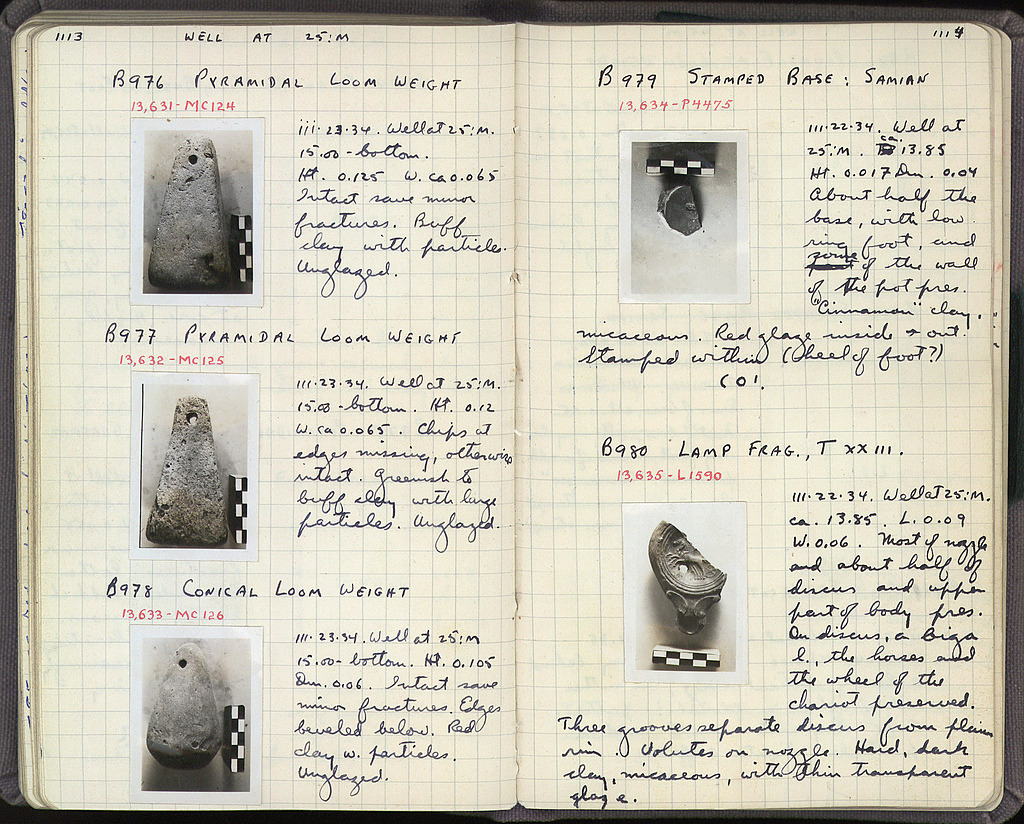 1113 WELL AT 25:M
B976 PYRAMIDAL LOOM WEIGHT
13,631-MC124
iii·23·34. Well at 25:M.
15.00-bottom.
Ht. 0.125 W. ca 0.065
Intact save minor
fractures. Buff
clay with particles.
Unglazed.
B977 PYRAMIDAL LOOM WEIGHT
13,632-MC125
III·23·34. Well at 25:M.
15.00-bottom. Ht. 0.12
W. ca 0.065. Chips at
edges missing, otherwise
intact. Greenish to
buff clay with large
particles. Unglazed.
B978 CONICAL LOOM WEIGHT
13,633-MC126
III·23.34. Well at 25:M
15.00-bottom. Ht. 0.105
Dm. 0.06. Intact save
minor fractures. Edges
beveled below. Red
clay w. particles.
Unglazed.
1114
B979 STAMPED BASE: SAMIAN
13,634-P4475
III·22·34. Well at
25:M. ca. 13.85
Ht. 0.017 Dm. 0.04
About half the
base, with low
ring foot, and
some of the wall
of the pot pres.
"Cinnamon" clay,
micaceous. Red glaze inside + out.
Stamped within (wheel of foot?)
COI.
B980 LAMP FRAG., T XXIII.
13,635-L1590
III·22·34. Well at 25:M.
ca. 13.85. L. 0.09
W. 0.06. Most of nozzle
and about half of
discus and upper
part of body pres.
On discus, a Biga
l., the horses and
the wheel of the
chariot preserved.
Three grooves separate discus from plain
rim. Volutes on nozzle. Hard, dark
clay, micaceous, with thin transparent
glaze.